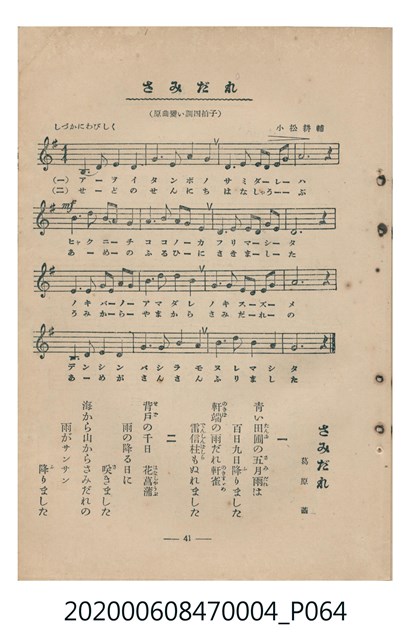 さみだれ
(原曲變い調四拍子)
しづかにわびしく
小松耕輔
(一)アーヲイタンボノサミダーレーハ
(二)せーどのせんにちはなしろーーぶ
mf
ヒャクニーチココノーカフリマーシータ
あーーめのふるひーにさきまーしーた
ノキバーノーアマダレノキスーズーメ
うみかーらーやまからさみだーれーの
デンシンバシラモヌレマシタ
あーめがさんさんふりました
さみだれ
葛原 𦿶
一
青い田圃の五月雨は
百日九日降りました
軒端の雨だれ軒雀
電信柱もぬれました
二
背戸の千日 花菖蒲
雨の降る日に
咲きました
海から山からさみだれの
雨がサンサン
降りました
— 41 —
202000608470004_P064